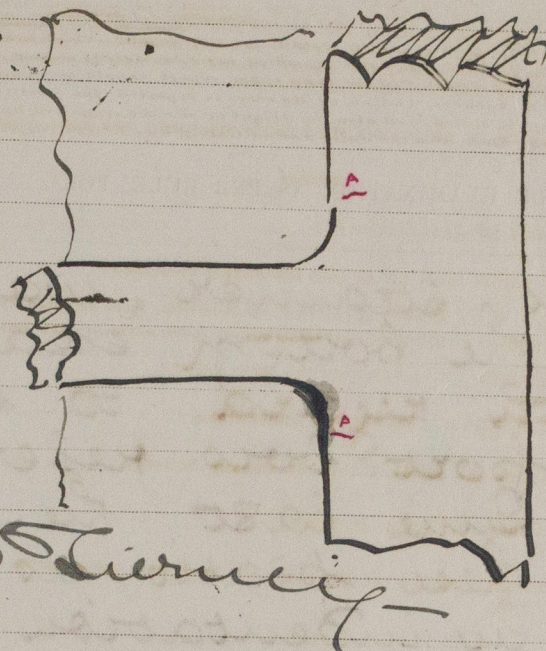 A
A
Tierney